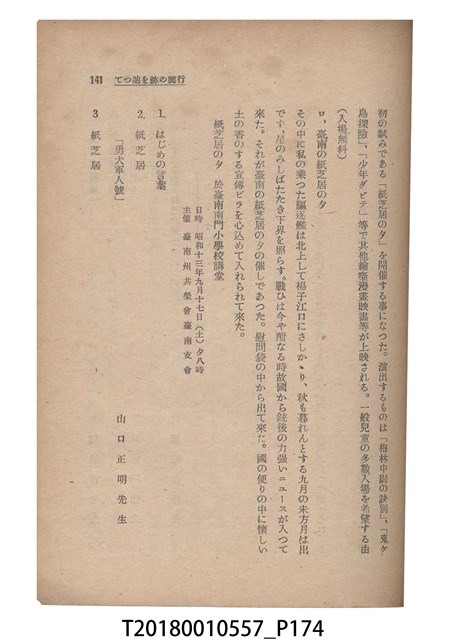 141　行興の跡を追つて
初の試みである「紙芝居の夕」を開催する事になつた。演出するものは「梅林中尉の訣別」、「鬼ケ
島探險」、「少年ダビデ」等で其他繪噺漫畫映畫等が上映される。一般兒童の多數入場を希望する由
(入場無料)
ロ、臺南の紙芝居の夕
その中に私の乘つた驅逐艦は北上して楊子江口にさしかゝり、秋も暮れんとする九月の末方月は出
です、星のみしばたたき下界を照らす。戰ひは今や酣なる時故國から銃後の力强いニュースが入つて
來た。それが臺南の紙芝居の夕の催しであつた。慰問袋の中から出て來た。國の便りの中に懷しい
土の香のする宣傳ビラを心込めて入れられて來た。
紙芝居の夕　於臺南南門小學校講堂
日時　昭和十三年九月十七日(土)夕八時
主催　臺南州共榮會臺南支會
1.　はじめの言葉
2.　紙芝居　山口正明先生
「勇犬軍人號」
3.　紙芝居
T20180010557_P174